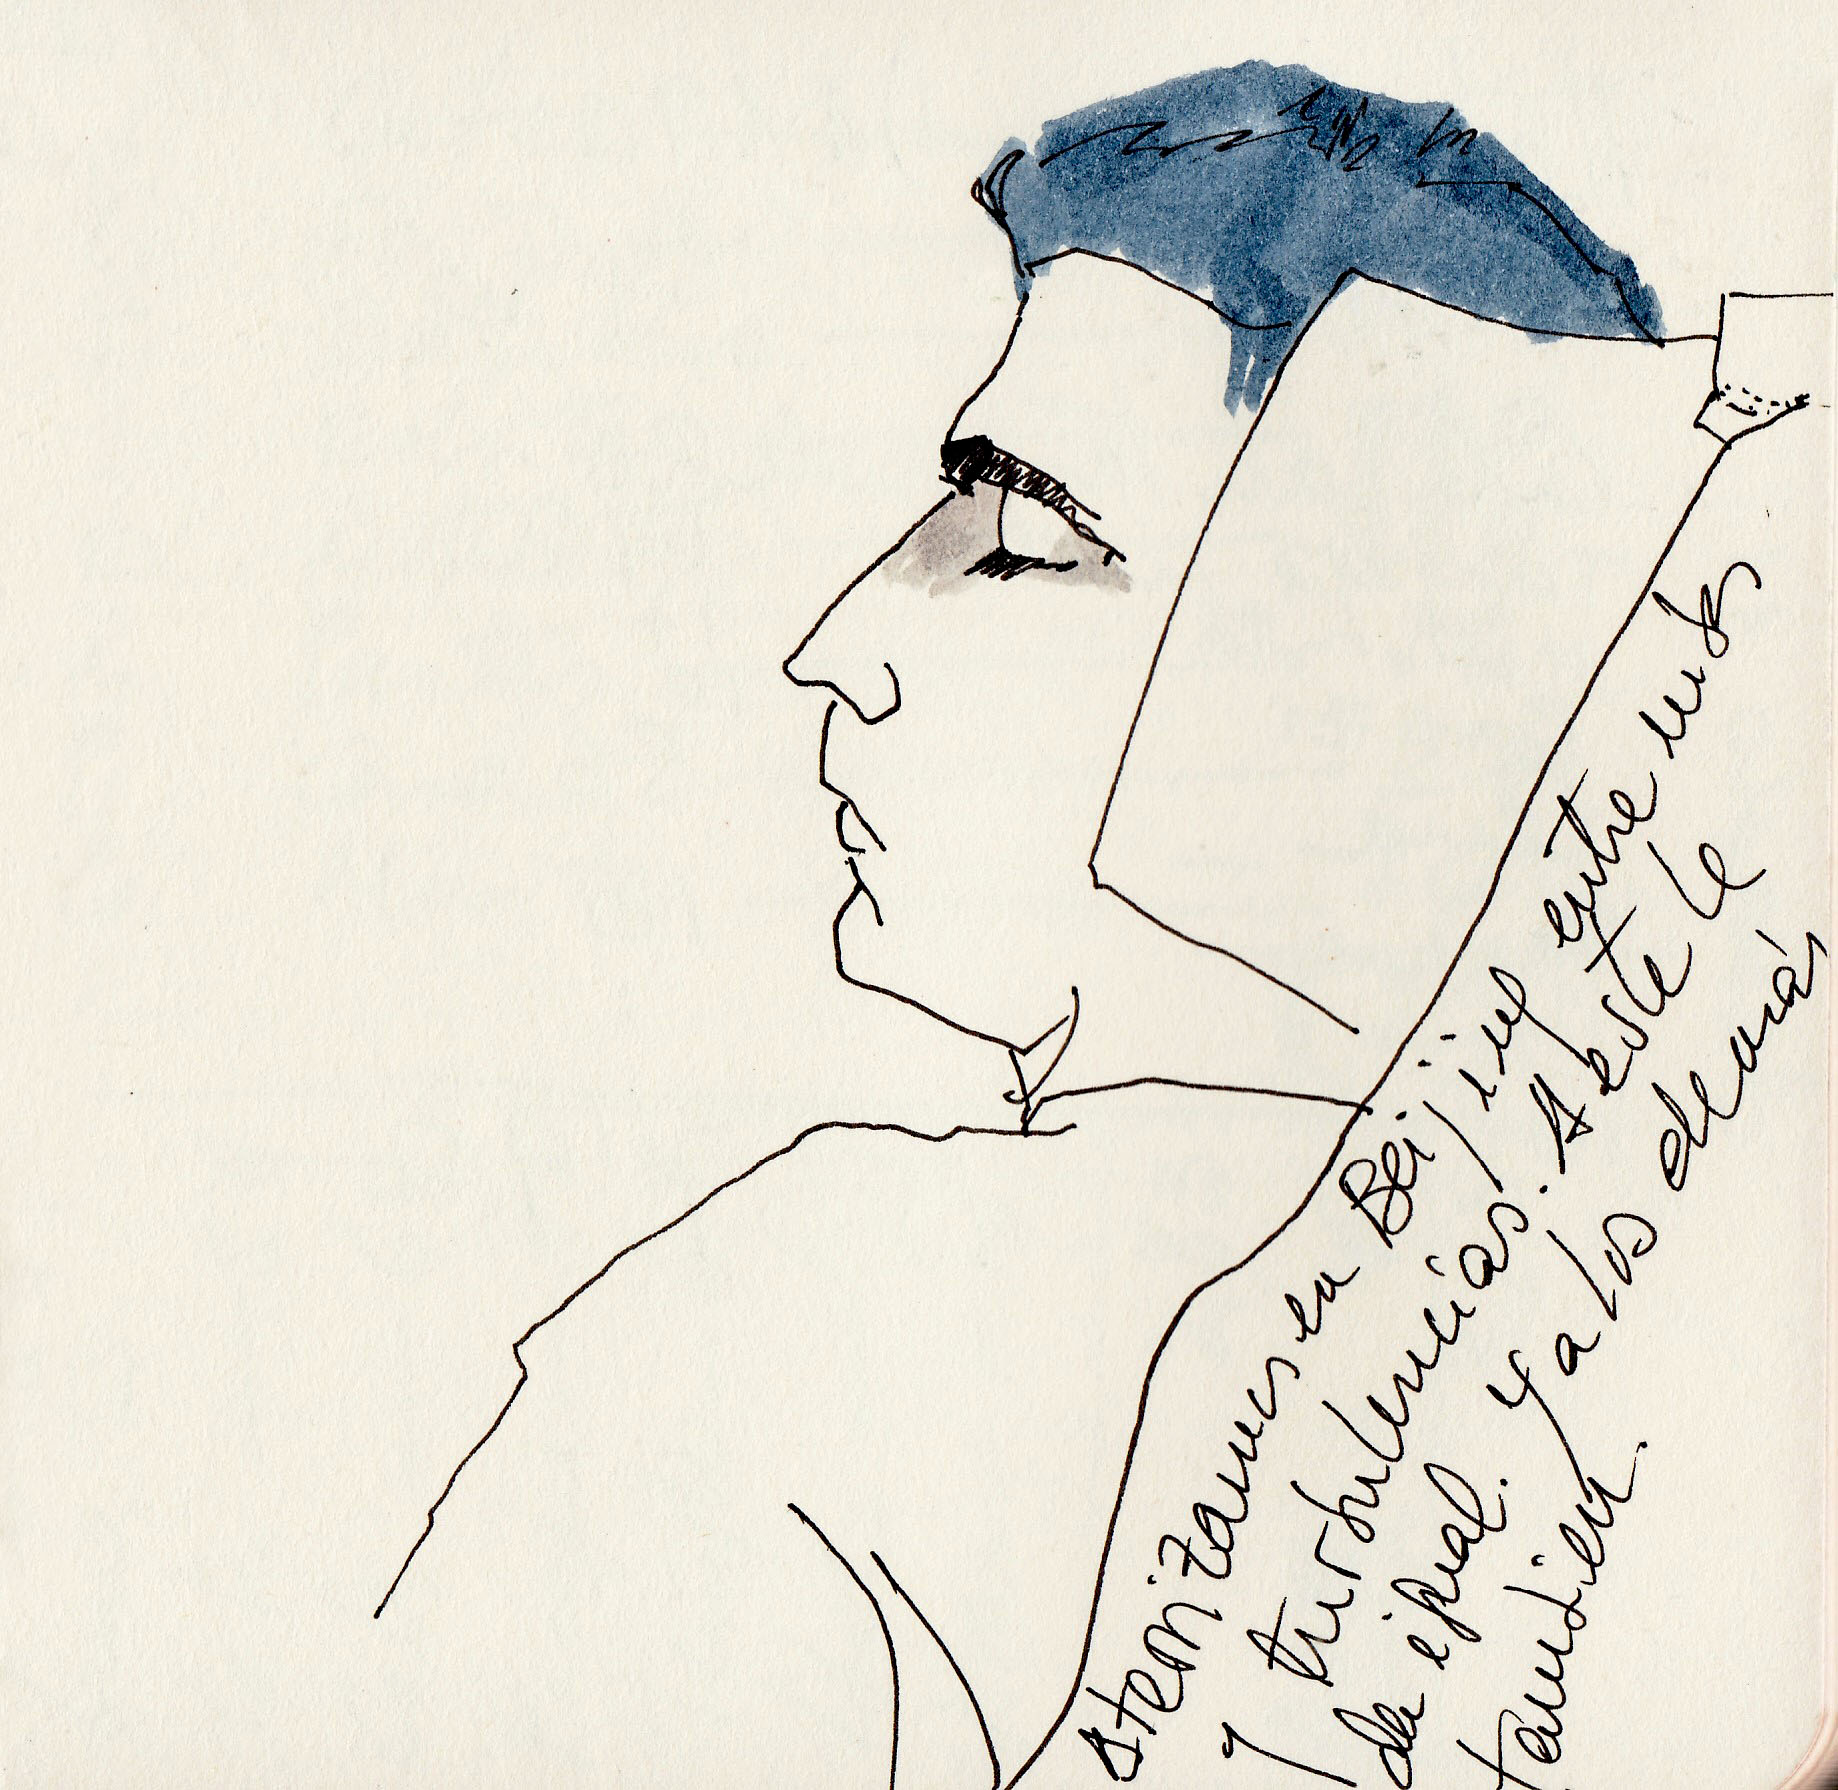 aterrizamos en Beijing entre nubes
y turbulencias. A este le
da igual. Y a los demás
también.